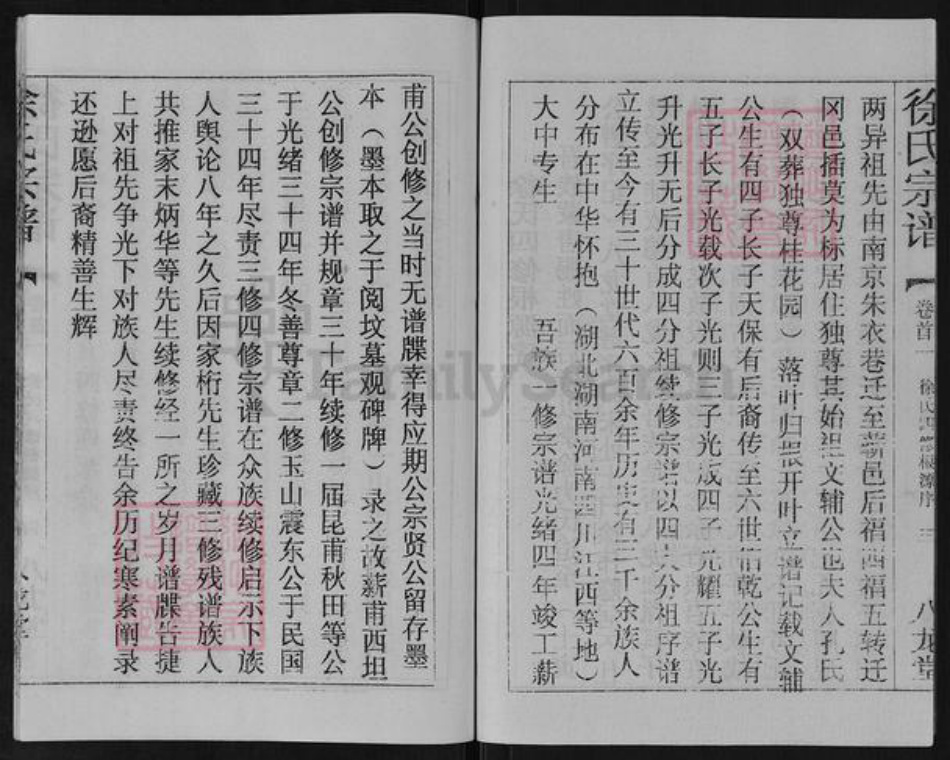 徐氏宗谱 【 卷首一 徐氏四修根源序 三 八龙堂
两异祖先由南京朱衣巷迁至蕲邑后福西福五转迁
冈邑插萸为标居住独尊其始祖文辅公也夫人孔氏
（双葬独尊桂花园）落叶归根开叶立谱记载文辅
公生有四子长子天保有后裔传至六世信乾公生有
五子长子光载次子光则三子光成四子光耀五子光
升光升无后分成四分祖续修宗谱以四大分祖序谱
立传至今有三十世代六百余年历史有三千余族人
分布在中华怀抱（湖北湖南河南四川江西等地）
大中专生 吾族一修宗谱光绪四年竣工薪
甫公创修之当时无谱牒幸得应期公宗贤公留存墨
本（墨本取之于阅坟墓观碑牌）录之故薪甫西坦
公创修宗谱并规章三十年续修一届昆甫秋田等公
于光绪三十四年冬善尊章二修玉山震东公于民国
三十四年尽责三修四修宗谱在众族续修启示下族
人舆论八年之久后因家桁先生珍藏三修残谱族人
共推家末炳华等先生续修经一所之岁月谱牒告捷
上对祖先争光下对族人尽责终告余历纪寒素阐录
还逊愿后裔精善生辉
FamilySearch